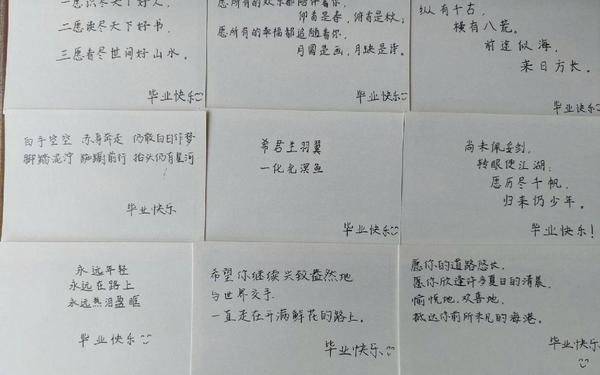 一愿识尽天下好人，
二愿读尽天下好书
三愿看尽世间好山水。
毕业快乐
愿所有的欢乐都陪伴着你，
仰首是春，俯首是秋；
愿所有的幸福都追随着你，
月圆是画，月缺是诗。
毕业快乐
纵有千古，
横有八荒。
前途似海，
来日方长。
毕业快乐
白手空空 赤身奔走 仍敢白日作梦
脚踏泥泞 踟蹰前行 抬头仍有星河
！
毕业快乐
希君生羽翼
一化北溟鱼
毕业快乐
尚未佩妥剑，
转眼便江湖；
愿历尽千帆，
归来仍少年。
毕业快乐！
永远年轻
永远在路上
永远热泪盈眶
毕业快乐
希望你继续兴致盎然地
与世界交手
一直走在开满鲜花的路上。
毕业快乐
愿你的道路悠长，
愿你欣逢许多夏日的清晨
愉悦地，欢喜地，
抵达你前所未见的海港。
毕业快乐